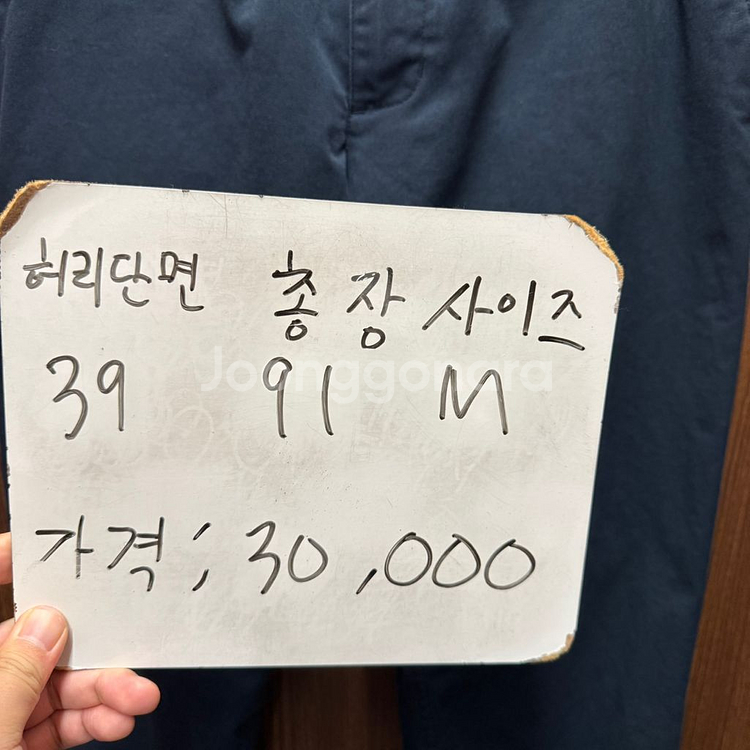 허리단면 총장 사이즈
39 91 M
Joonggonara
가격; 30,000